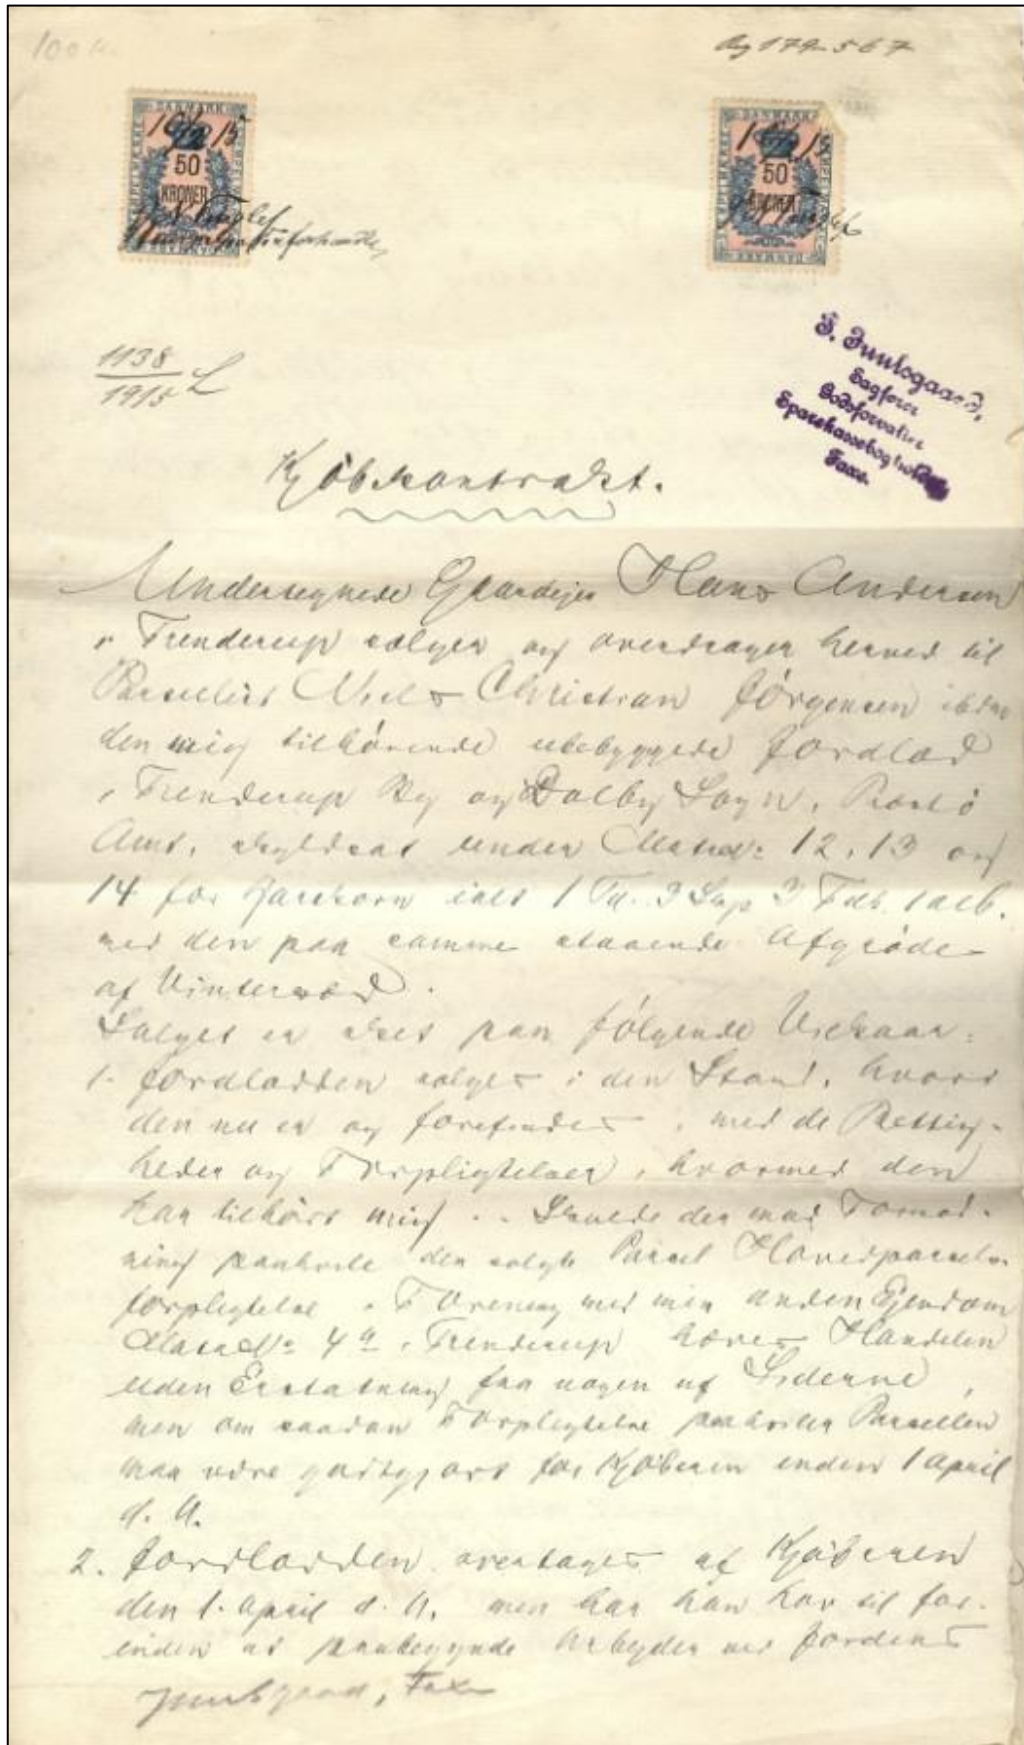 100 K.
Ag 179-567
DANMARK
16/2 15
50
KRONER
DANMARK
1/2 15
50
KRONER
DANMARK
1138
1915 L
J. Juulsgaard,
Sagfører
Godsforvalter
Sparekassebogholder
Faxe.
Kjöbekontrakt.
Undertegnede Gaardejer Hans Andersen
i Trenderup sælger og overdrager herved til
Parcellist Niels Christian Jörgensen ibdm
den mig tilhörende ubebyggede Jordlod
i Trenderup By og Dalby Sogn, Præstö
Amt, skyldsat under Matr. No 12, 13 og
14 for Hartkorn ialt 1 Td. 3 Skp 3 Fdk. 1 alb.
med den paa samme staaende Afgröde
af Vintersæd.
Salget er sket paa fölgende Vilkaar:
1. Jordlodden sælges i den Stand, hvori
den nu er og forefindes, med de Rettig-
heder og Forpligtelser, hvormed den
har tilhört mig. Skulde der mod Formod-
ning paahvile den solgte Parcel Hovedparcels-
forpligtelse i Forening med min anden Ejendom
Matr. No 4a i Trenderup hæves Handelen
uden Erstatning fra nogen af Siderne,
men om saadan Forpligtelse paahviler Parcellen
maa være godtgjort for Kjöberen inden 1 April
d. A.
2. Jordlodden overtages af Kjöberen
den 1. April d. A. men har han Lov til for-
inden at paabegynde Arbejder ved Jordens
Juulsgaard, Faxe